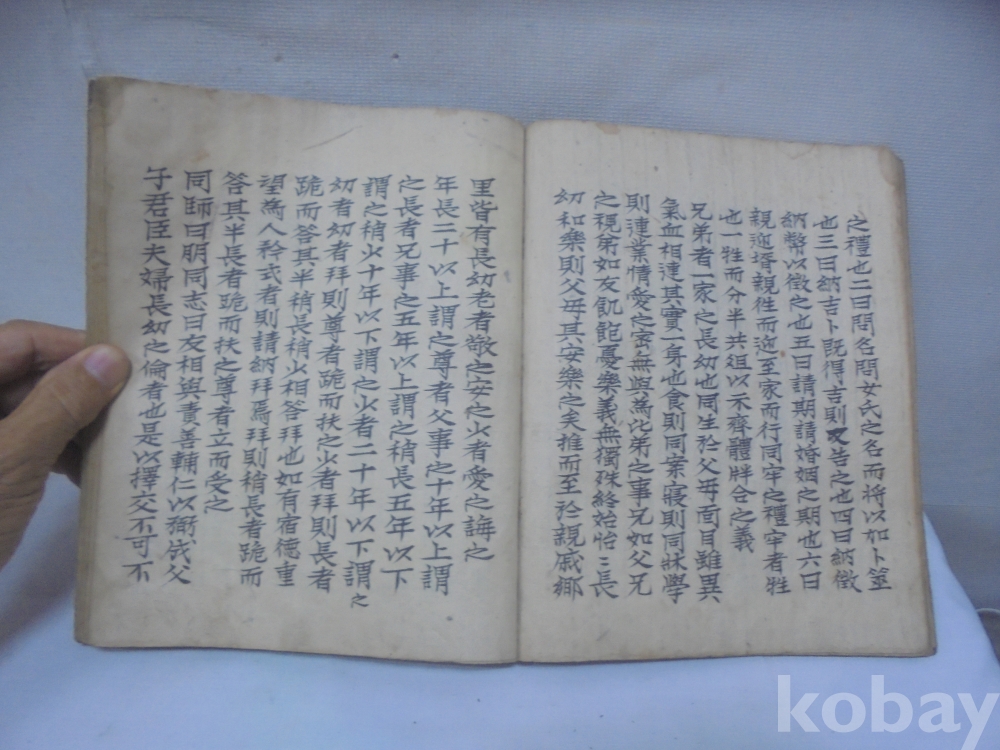 之禮也二曰問名問女氏之名而將以如卜筮
也三曰納吉卜既得吉則又告之也四曰納徵
納幣以徵之也五曰請期請婚姻之期也六曰
親迎壻親徃而迎至家而行同牢之禮牢者牲
也一牲而分半共俎以示齊體牉合之義
兄弟者一家之長幼也同生於父母面目雖異
氣血相連其實一身也食則同案寢則同牀學
則連業情愛之密無與爲比弟之事兄如父兄
之視弟如友飢飽憂樂義無獨殊終始怡〻長
幼和樂則父母其安樂之矣推而至於親戚鄉
里皆有長幼老者敬之安之少者愛之誨之
年長二十以上謂之尊者父事之十年以上謂
之長者兄事之五年以上謂之稍長五年以下
謂之稍少十年以下謂之少者二十年以下謂之
幼者幼者拜則尊者跪而扶之少者拜則長者
跪而答其半稍長稍少相答拜也如有宿德重
望爲人矜式者則請納拜焉拜則稍長者跪而
答其半長者跪而扶之尊者立而受之
同師曰朋同志曰友相與責善輔仁以弼成父
子君臣夫婦長幼之倫者也是以擇交不可不
kobay